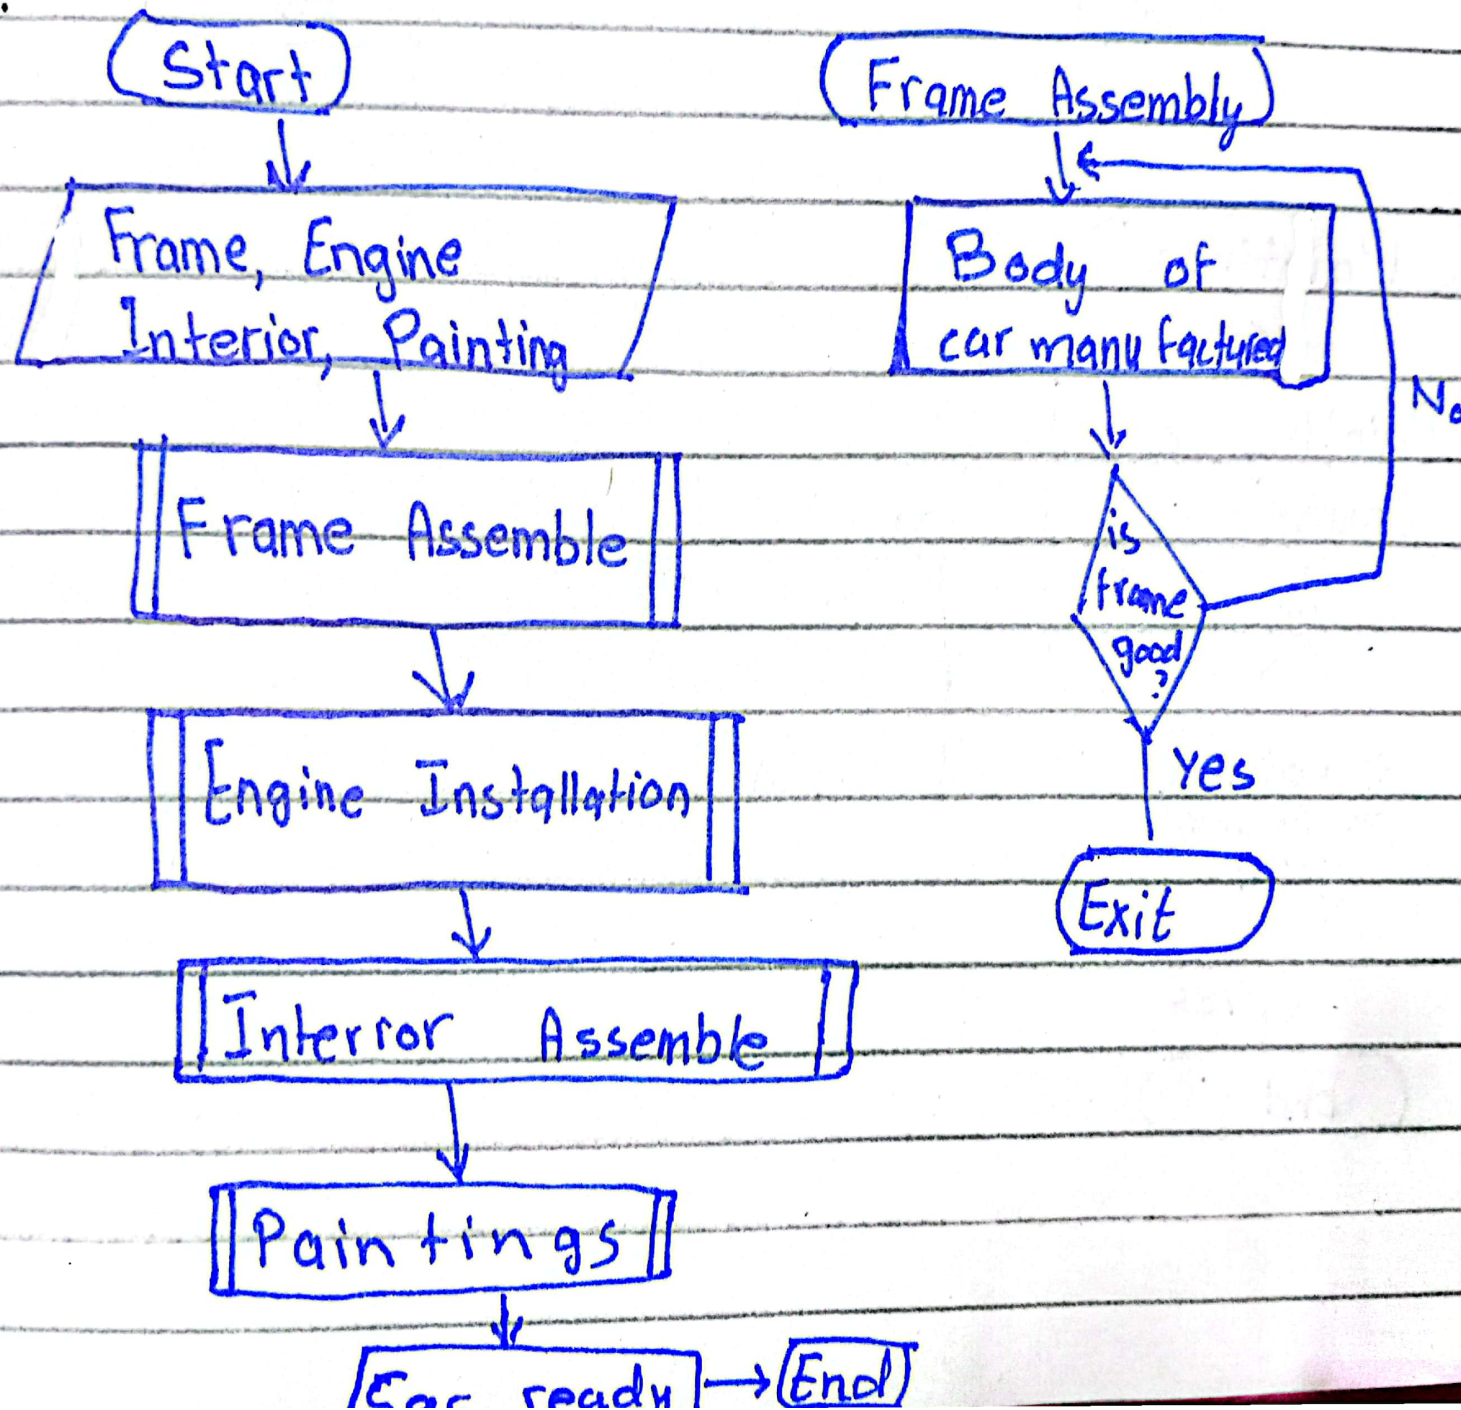 Start
Frame, Engine
Interior, Painting
Frame Assemble
Engine Installation
Interior Assemble
Paintings
Car ready
End
Frame Assembly
Body of
car manufactured
No
is
frame
good
?
Yes
Exit